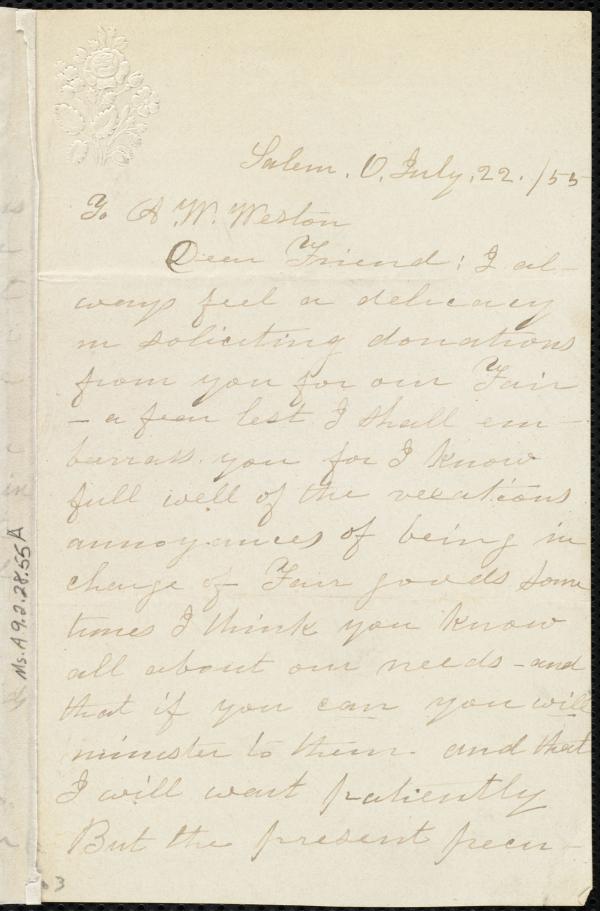 Salem, O, July, 22. /55
To A. W. Weston
Dear Friend: I al-
ways feel a delicacy
in soliciting donations
from you for our Fair
- a fear lest I shall em-
barrass you for I know
full well of the vexations
annoyances of being in
charge of Fair goods Some
times I think you know
all about our needs - and
that if you can you will
minister to them and that
I will wait patiently
But the present pecu-
Ms. A 9.2.28.55 A
3